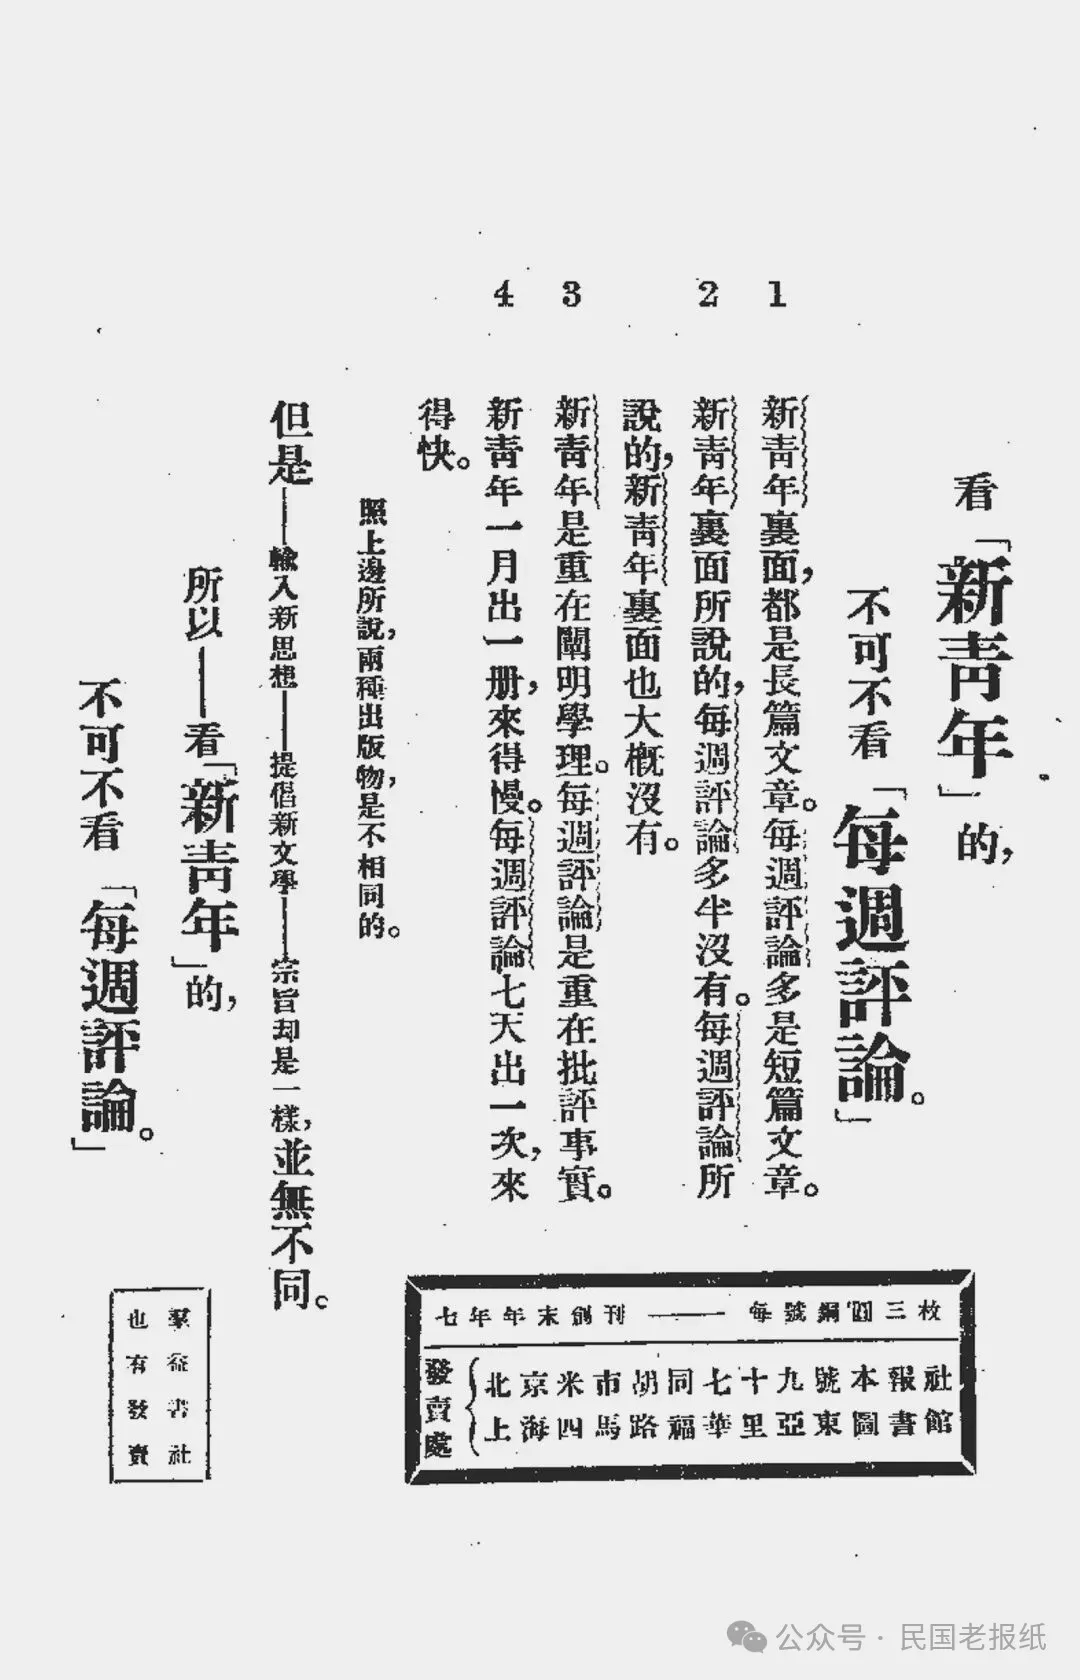 看「新靑年」的，
不可不看「每週評論。」
1 新靑年裏面，都是長篇文章。每週評論多是短篇文章。
2 新靑年裏面所說的，每週評論多半沒有。每週評論所
說的，新靑年裏面也大槪沒有。
3 新靑年是重在闡明學理。每週評論是重在批評事實。
4 新靑年一月出一册，來得慢。每週評論七天出一次，來
得快。
照上邊所說，兩種出版物，是不相同的。
但是——輸入新思想——提倡新文學——宗旨却是一樣，並無不同。
所以——看「新靑年」的，
不可不看「每週評論。」
七年年末創刊——每號銅圓三枚
發賣處
北京米市胡同七十九號本報社
上海四馬路福華里亞東圖書館
羣益書社
也有發賣
公众号·民国老报纸